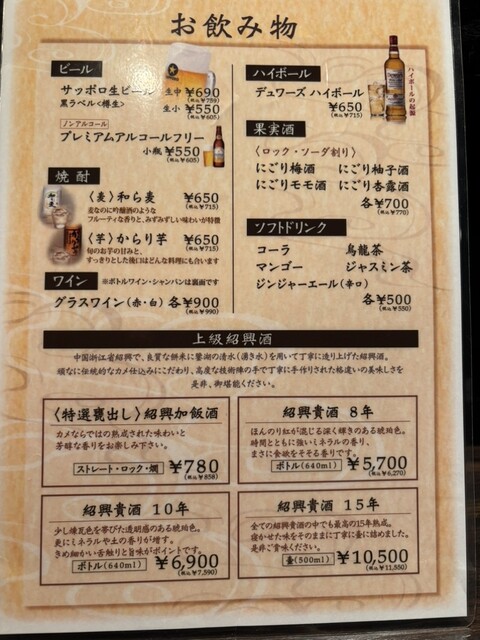 お飲み物
ビール
サッポロ生ビール 生中 ¥690
(税込¥759)
黒ラベル<樽生> 生小 ¥550
(税込¥605)
ノンアルコール
プレミアムアルコールフリー
小瓶 ¥550
(税込¥605)
焼酎
〈麦〉和ら麦 ¥650
(税込¥715)
麦なのに吟醸酒のような
フルーティな香りと、みずみずしい味わいが特徴
〈芋〉からり芋 ¥650
(税込¥715)
旬のお芋の甘みと、
すっきりとした後口はどんな料理にも合います
ワイン ※ボトルワイン・シャンパンは裏面です
グラスワイン(赤・白) 各¥900
(税込¥990)
ハイボール
デュワーズ ハイボール
¥650
(税込¥715)
ハイボールの起源
果実酒
〈ロック・ソーダ割り〉
にごり梅酒 にごり柚子酒
にごりモモ酒 にごり杏露酒
各¥700
(税込¥770)
ソフトドリンク
コーラ 烏龍茶
マンゴー ジャスミン茶
ジンジャーエール(辛口)
各¥500
(税込¥550)
上級紹興酒
中国浙江省紹興で、良質な餅米に鑒湖の清水(湧き水)を用いて丁寧に造り上げた紹興酒。
頑なに伝統的なカメ仕込みにこだわり、高度な技術陣の手で丁寧に手作りされた格違いの美味しさを
是非、御堪能ください。
〈特選甕出し〉紹興加飯酒
カメならではの熟成された味わいと
芳醇な香りをお楽しみ下さい。
ストレート・ロック・燗 ¥780
(税込¥858)
紹興貴酒 8年
ほんのり紅が混じる深く輝きのある琥珀色。
時間とともに強いミネラルの香り、
まさに食欲をそそる香りです。
ボトル(640ml) ¥5,700
(税込¥6,270)
紹興貴酒 10年
少し煉瓦色を帯びた透明感のある琥珀色。
更にミネラルや土の香りが増す。
きめ細かい舌触りと旨味がポイントです。
ボトル(640ml) ¥6,900
(税込¥7,590)
紹興貴酒 15年
全ての紹興貴酒の中でも最高の15年熟成。
寝かせた味をそのままに丁寧に壷に詰めました。
是非ご賞味ください。
壷(500ml) ¥10,500
(税込¥11,550)